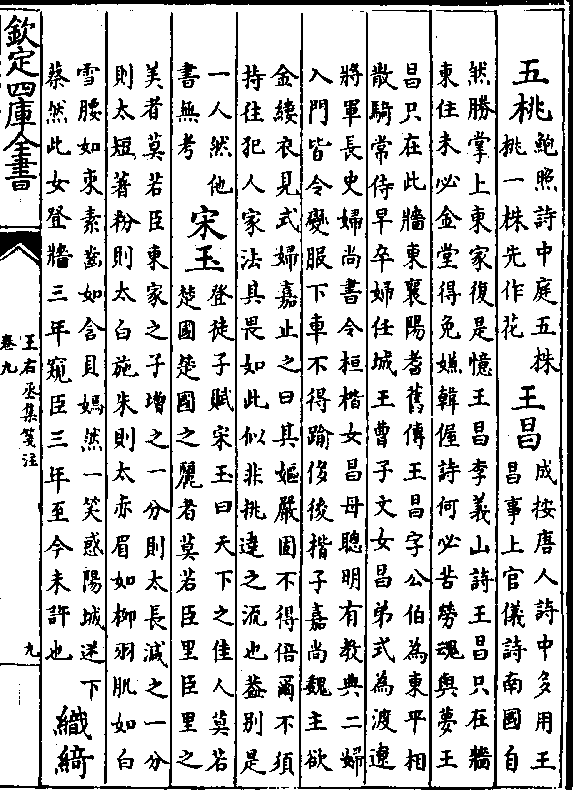 五桃
鮑照詩中庭五株
桃一株先作花
王昌
成按唐人詩中多用王
昌事上官儀詩南國自
然勝掌上東家復是憶王昌李義山詩王昌只在牆
東住未必金堂得免嫌韓偓詩何必苦勞魂與夢王
昌只在此牆東襄陽耆舊傳王昌字公伯為東平相
散騎常侍早卒婦任城王曹子文女昌弟式為渡遼
將軍長史婦尚書令桓楷女昌母聰明有教典二婦
入門皆令變服下車不得踰侈後楷子嘉尚魏主欲
金縷衣見式婦嘉止之曰其嫗嚴固不得倍爾不須
持往犯人家法其畏如此似非挑達之流也蓋別是
一人然他
書無考
宋玉
登徒子賦宋玉曰天下之佳人莫若
楚國楚國之麗者莫若臣里臣里之
美者莫若臣東家之子增之一分則太長減之一分
則太短著粉則太白施朱則太赤眉如柳羽肌如白
雪腰如束素齒如含貝嫣然一笑惑陽城迷下
蔡然此女登牆三年窺臣三年至今未許也
織綺
欽定四庫全書
王右丞集箋注
卷九
九